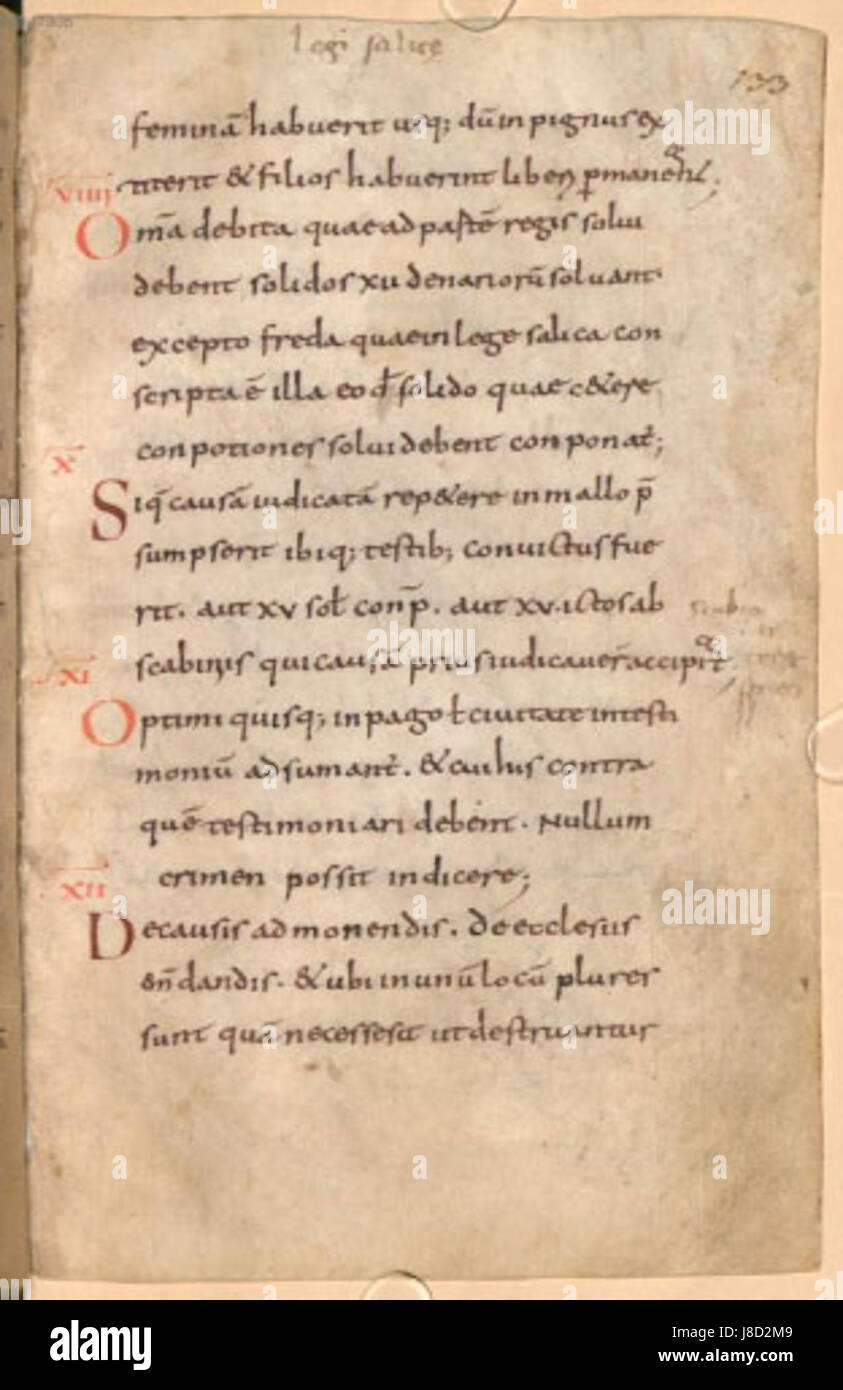 legi salice
133
feminā habuerit usq; dū in pignus ex
titerit & filios habuerint liberi p̄manent;
VIIII
Om̄a debita quae ad partē regis solui
debent solidos xii denariorū soluant.
excepto freda quae in lege salica con
scripta ē illa eod̄ solido quae c&ere
conpotiones solui debent conponat̄;
X
Siq̄ causā iudicatā rep&ere in mallo p̄
sumpserit ibiq; testib; conuictus fue
rit. aut xv sol̄ conp̄. aut xv. ictos ab
scabinis qui causā prius iudicauer̄ accipi&
XI
Optimi quisq; in pago ł ciuitate in testi
moniū adsumant̄. & cui his contra
quē testimoniari debent. Nullum
crimen possit indicere;
XII
De causis admonendis. de ecclesiis
em̄dandis. & ubi in unū locū plures
sunt quā necesse sit ut destruantur
a alamy
alamy
Image ID: J8D2M9
www.alamy.com